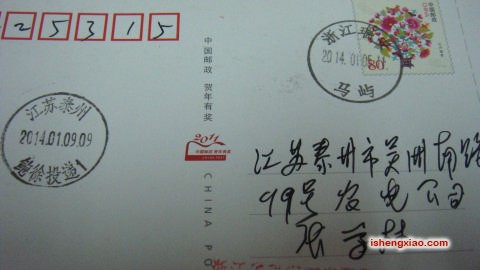 25315
中国邮政
80
浙江瑞安
2014.01.05
马屿
江苏泰州
2014.01.09.09
鲍徐投递1
中国邮政 贺年有奖
2011
CHINA PO
江苏泰州市吴洲南路
99号发电公司
ishengxiao.com